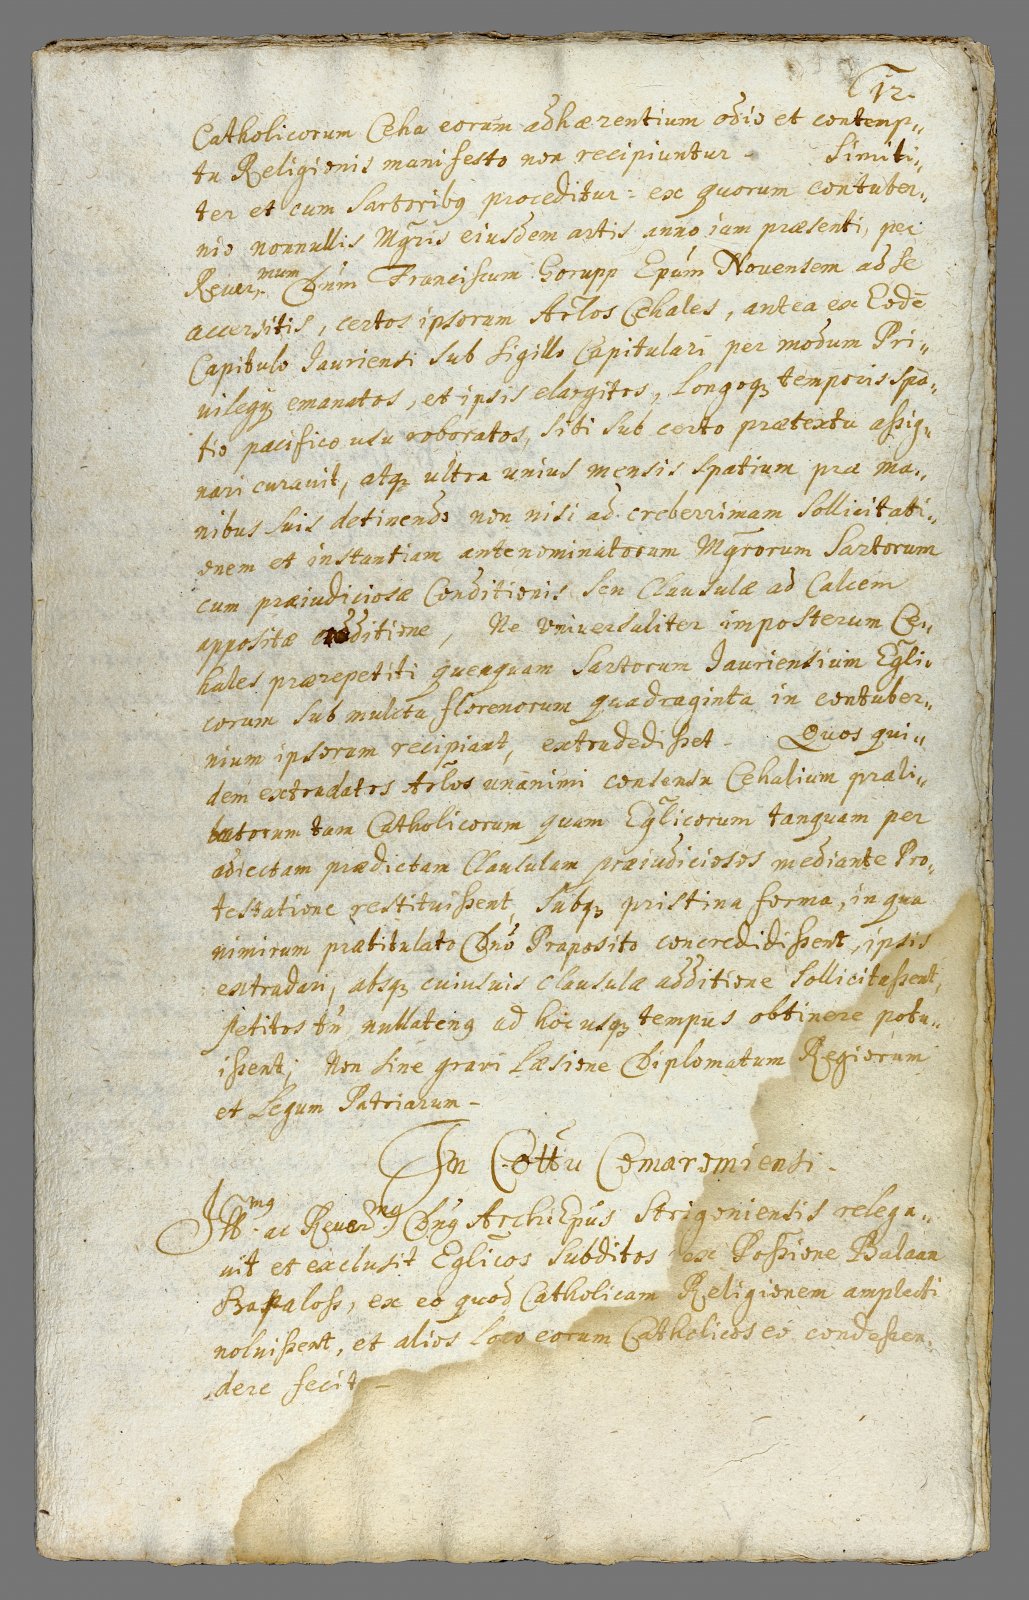 12.
Catholicorum Ceha eorum adhærentium odio et contemp„
tu Religionis manifesto non recipiuntur - Simili„
ter et cum Sartoribꝫ proceditur: ex quorum contuber„
nio nonnullis Mgr̃is eiusdem artis anno iam præsenti, per
Reuer.mum Dnũm Franciscum Gorupp Epũm Nouensem ad se
accersitis, certos ipsorum Arlos Cehales, antea ex Eodẽ
Capitulo Jauriensi sub sigillo Capitulari per modum Pri„
uilegÿ emanatos, et ipsis elargitos, longoqꝫ temporis spa„
tio pacifico usu roboratos, sibi sub certo prætextu assig„
nari curauit, atqꝫ ultra unius mensis spatium præ ma„
nibus suis detinendo non nisi ad creberrimam sollicitati„
onem et instantiam antenominatorum Mgr̃orum Sartorum
cum præiudiciosæ Conditionis seu Clausulæ ad Calcem
appositæ additione, Ne vniuersaliter imposterum Ce„
hales prærepetiti quenquam Sartorum Jauriensium Eg̃li„
corum sub mulcta florenorum quadraginta in contuber„
nium ipsorum recipiant, extradedisset - Quos qui„
dem extradatos Arlos unanimi consensu Cehalium præli„
batorum tam Catholicorum quam Eg̃licorum tanquam per
adiectam prædictam Clausulam præiudiciosos mediante Pro„
testatione restituissent, subqꝫ pristina forma, in qua
nimirum prætitulato Dnõ Præposito concredidissent, ipsis
extradari, absqꝫ cuiusuis Clausulæ additione sollicitassent,
petitos tñ nullatenꝰ ad hoc usqꝫ tempus obtinere potu„
issent; Non sine graui læsione Diplomatum Regiorum
et Legum Patriarum -
In Cottũ Comaromiensi -
Ill.mꝰ ac Reuer.mꝰ Dnꝰ ArchiEpũs Strigoniensis relega„
uit et exclusit Eg̃licos subditos ex Possione Balaan
Bapaloss, ex eo quod Catholicam Religionem amplecti
noluissent, et alios loco eorum Catholicos eo condessen„
dere fecit -